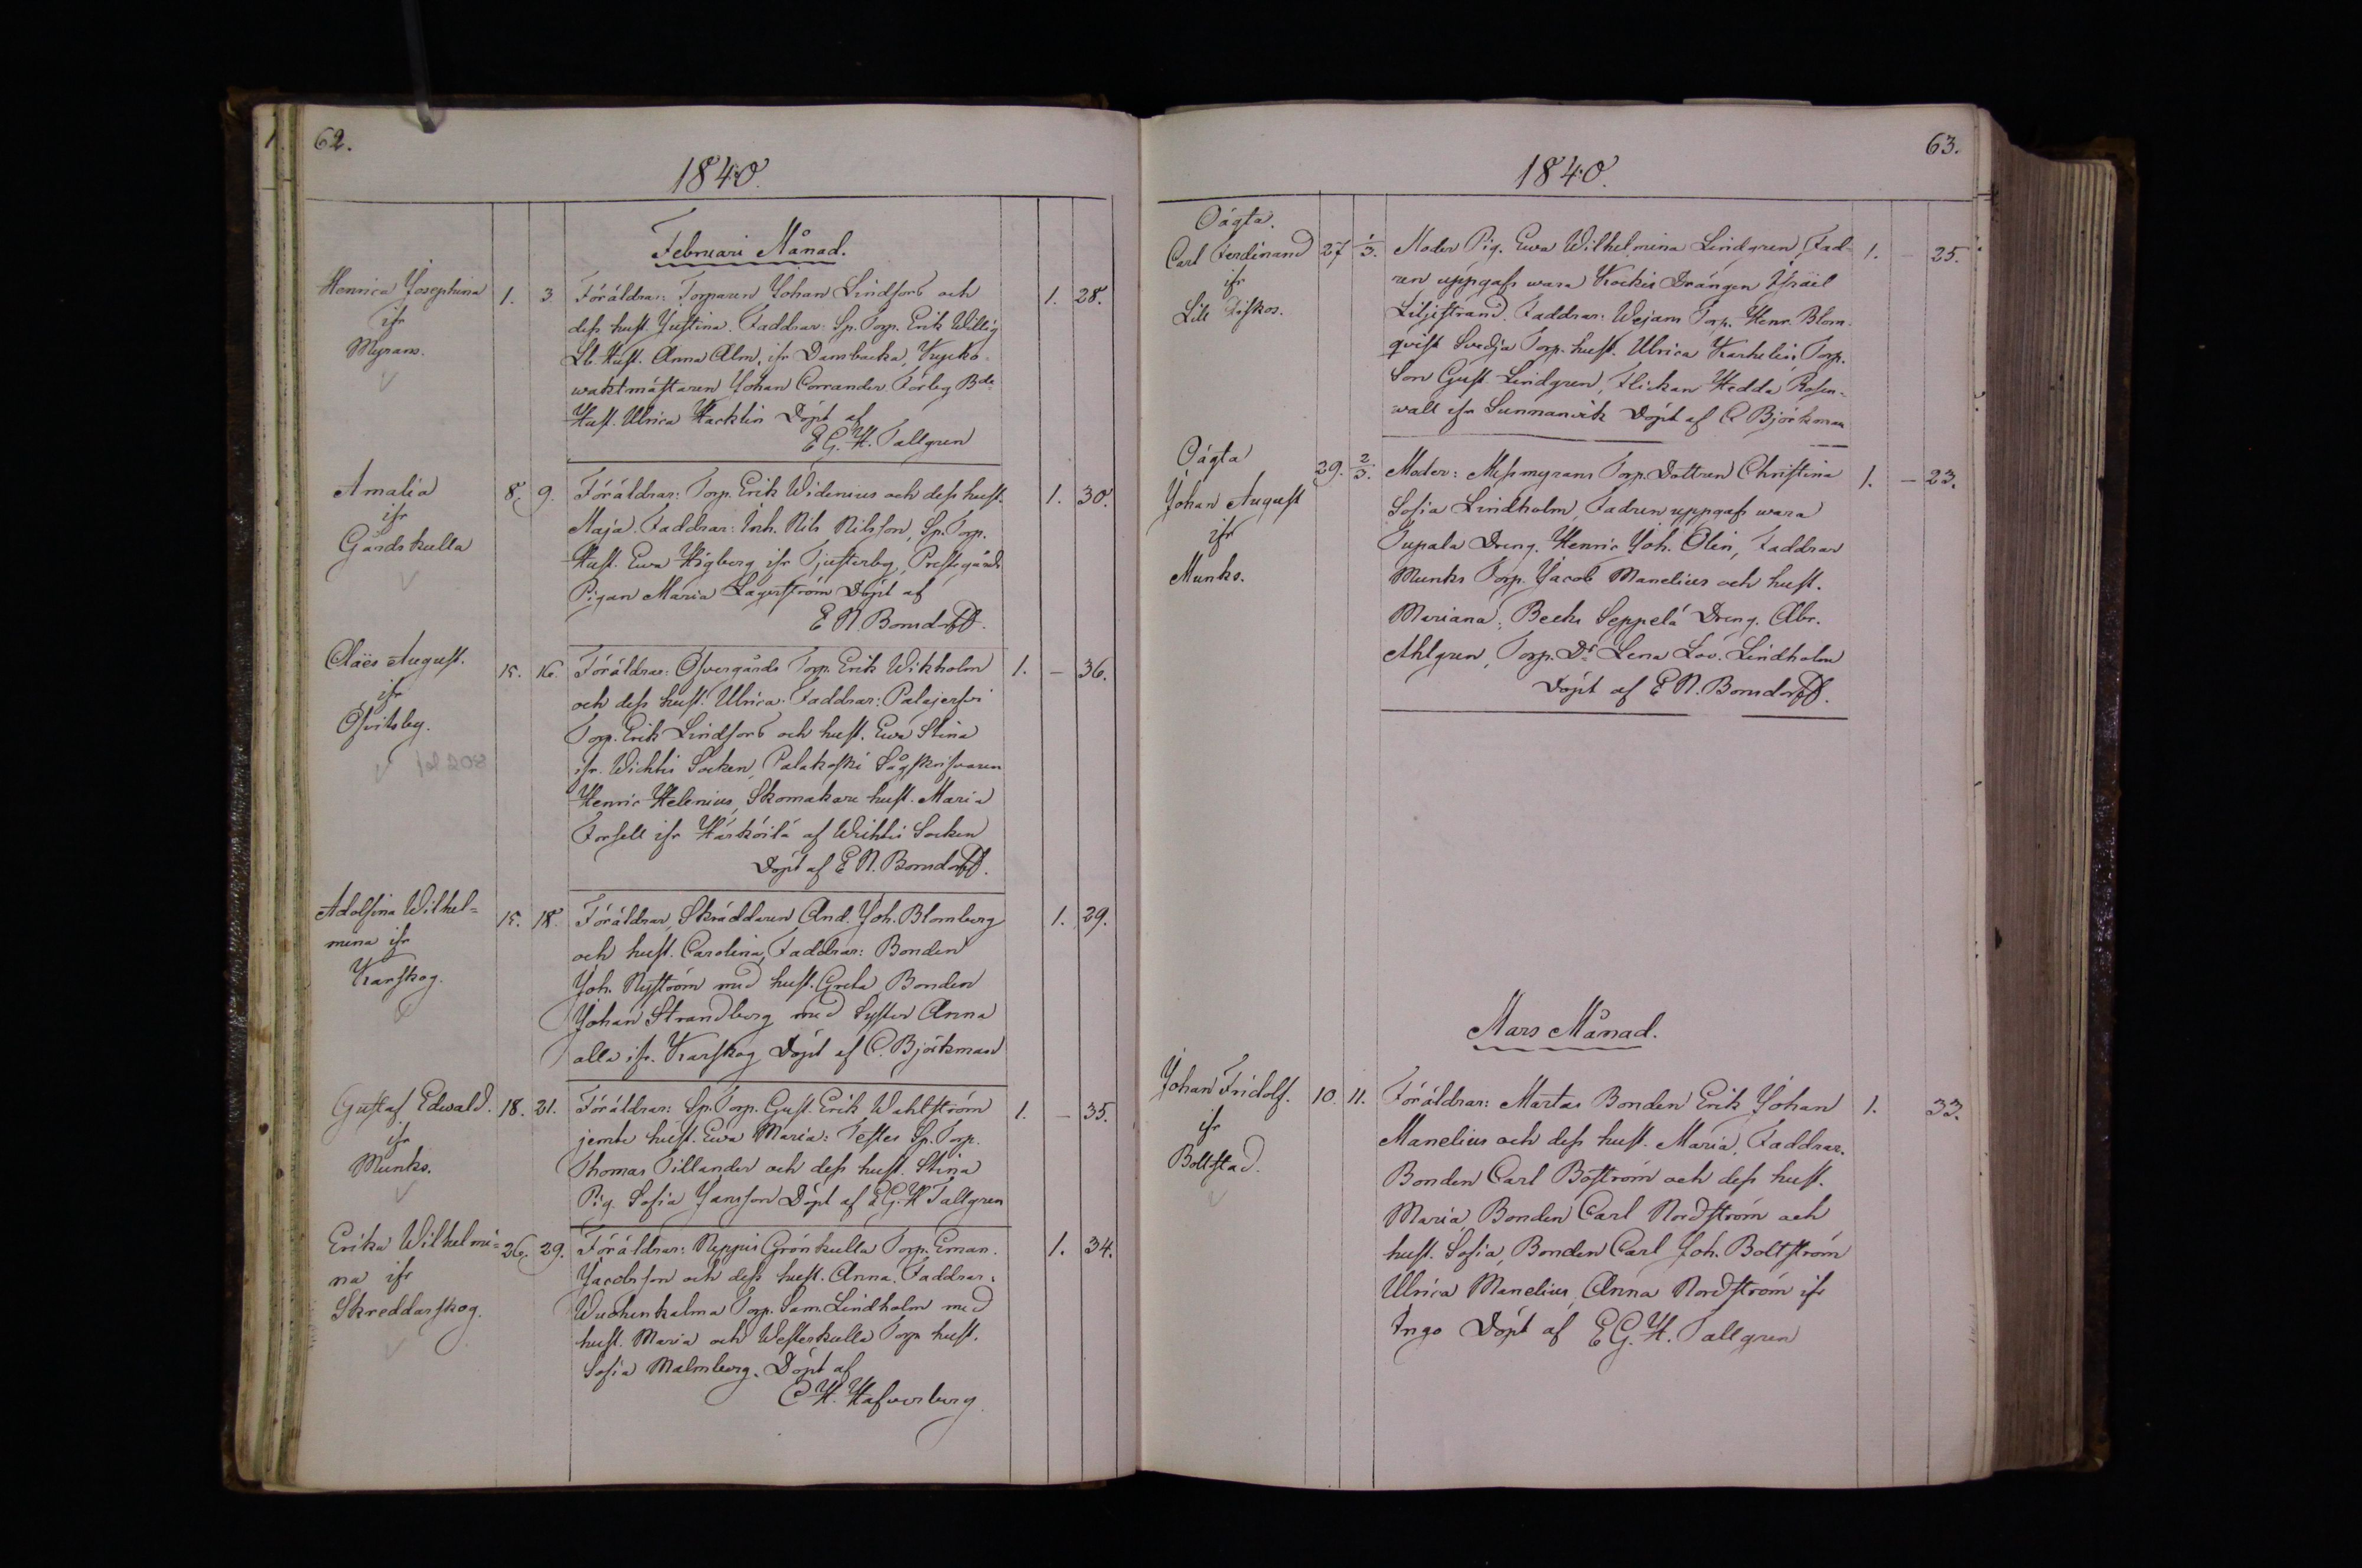 62.
1840.
Februari Månad.
Henrica Josephina 1. 3. Föräldrar: Torparen Johan Lindfors och 1. 28.
ifr dess hust. Justina. Faddrar: Sp. Torp. Erik Willig
Myrans. Lb. Hust. Anna Alm, ifr Dambacka, Kyrko-
waktmästaren Johan Corrander Förbg Bde
Hust. Ulrica Hacklin Döpt af
E G. H. Tallgren
Amalia 8. 9. Föräldrar: Torp. Erik Widenius och dess hust. 1. 30.
ifr Maja. Faddrar: Inh. Nils Nilsson, Sp. Torp.
Gårdskulla Hust. Ewa Högberg ifr Tjusterby, Prestgårds
Pigan Maria Lagerström Döpt af
E N. Bonsdorff.
Claës August. 15. 16. Föräldrar: Öfvergårds Torp. Erik Wikholm 1. – 36.
ifr och dess hust. Ulrica. Faddrar: Palajerfvi
Ofvitsby. Torp. Erik Lindfors och hust. Ewa Stina
fol 208 ifr. Wichtis Socken, Palakoski Sågskrifvaren
Henric Helenius, Skomakare hust. Maria
Forsell ifr Härköilä af Wichtis Socken
Döpt af E N. Bonsdorff.
Adolfina Wilhel= 15. 18. Föräldrar, Skräddaren And. Joh. Blomberg 1. 29.
mina ifr och hust. Carolina, Faddrar: Bonden
Karskog. Joh. Nyström med hust. Greta, Bonden
Johan Strandberg med Syster Anna
alla ifr. Karskog Döpt af C. Björkman
Gustaf Edwald. 18. 21. Föräldrar: Sp. Torp. Gust. Erik Wahlström 1. – 35.
ifr jemte hust. Ewa Maria: Testes Sp. Torp.
Munks. Thomas Tillander och dess hust. Stina
Pig. Sofia Jansson Döpt af E G. H Tallgren
Erika Wilhelmi= 26. 29. Föräldrar: Neppis Grönkulla Torp. Eman. 1. 34.
na ifr Jacobsson och dess hust. Anna. Faddrar:
Skreddarskog. Wuohenkalma Torp. Sam. Lindholm med
hust. Maria och Westerkulla Torp. hust.
Sofia Malmberg. Döpt af
C H. Hafverberg.
63.
1840.
Oägta.
Carl Ferdinand 27 1/3. Moder Pig. Ewa Wilhelmina Lindgren, Fad- 1. – 25.
ifr ren uppgafs wara Kockis Drängen Israël
Lill Diskos. Liljestrand. Faddrar: Wejans Torp. Henr. Blom-
qvist Svedja Torp. hust. Ulrica Karhelin, Torp.
Son Gust. Lindgren, Flickan Hedda Rosen-
wall ifr Sunnanvik Döpt af C Björkman
Oägta 29. 2/3. Moder: Mossmyrans Torp. Dottren Christina 1. – 23.
Johan August Sofia Lindholm, Fadren uppgafs wara
ifr Tupala Dreng. Henric Joh. Olin, Faddrar
Munks. Munks Torp. Jacob Manelius och hust.
Mariana, Beeks Seppelä Dreng. Abr.
Ahlgren, Torp. Dr Lena Lov. Lindholm
Döpt af E N. Bonsdorff.
Mars Månad.
Johan Fridolf. 10. 11. Föräldrar: Martas Bonden Erik Johan 1. 33.
ifr Manelius och dess hust. Maria, Faddrar.
Boltstad. Bonden Carl Boström och dess hust.
Maria, Bonden Carl Nordström och
hust. Sofia, Bonden Carl Joh. Boltström
Ulrica Manelius, Anna Nordström ifr
Ingo Döpt af E G. H. Tallgren